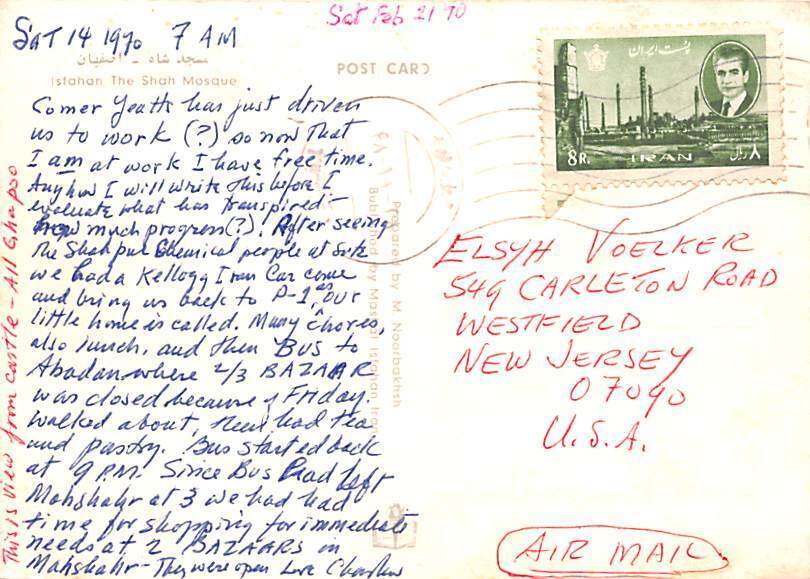 Sat Feb 21 70
SAT 14 1970 7 AM
مسجد شاه - اصفهان
Isfahan The Shah Mosque
POST CARD
Comer Yeatts has just driven
us to work (?) so now that
I am at work I have free time.
Anyhow I will write this before I
evaluate what has transpired -
how much progress (?). After seeing
the Shahpur Chemical people at Site
we had a Kellogg Iran Car come
and bring us back to P-1, as our
little home is called. Many chores,
also lunch, and then BUS to
Abadan where 2/3 BAZAAR
was closed because of Friday.
Walked about, then had tea
and pastry. Bus started back
at 9 P.M. Since Bus had left
Mahshahr at 3 we had had
time for shopping for immediate
needs at 2 BAZAARS in
Mahshahr - They were open Love
This is view from castle - Ali Ghapso
Prepared by M. Noorbakhsh
Published by Masoat Isfahan Iran
پست ایران
8R. IRAN ۸ ریال
ELSYH VOELKER
549 CARLETON ROAD
WESTFIELD
NEW JERSEY
07090
U.S.A.
AIR MAIL